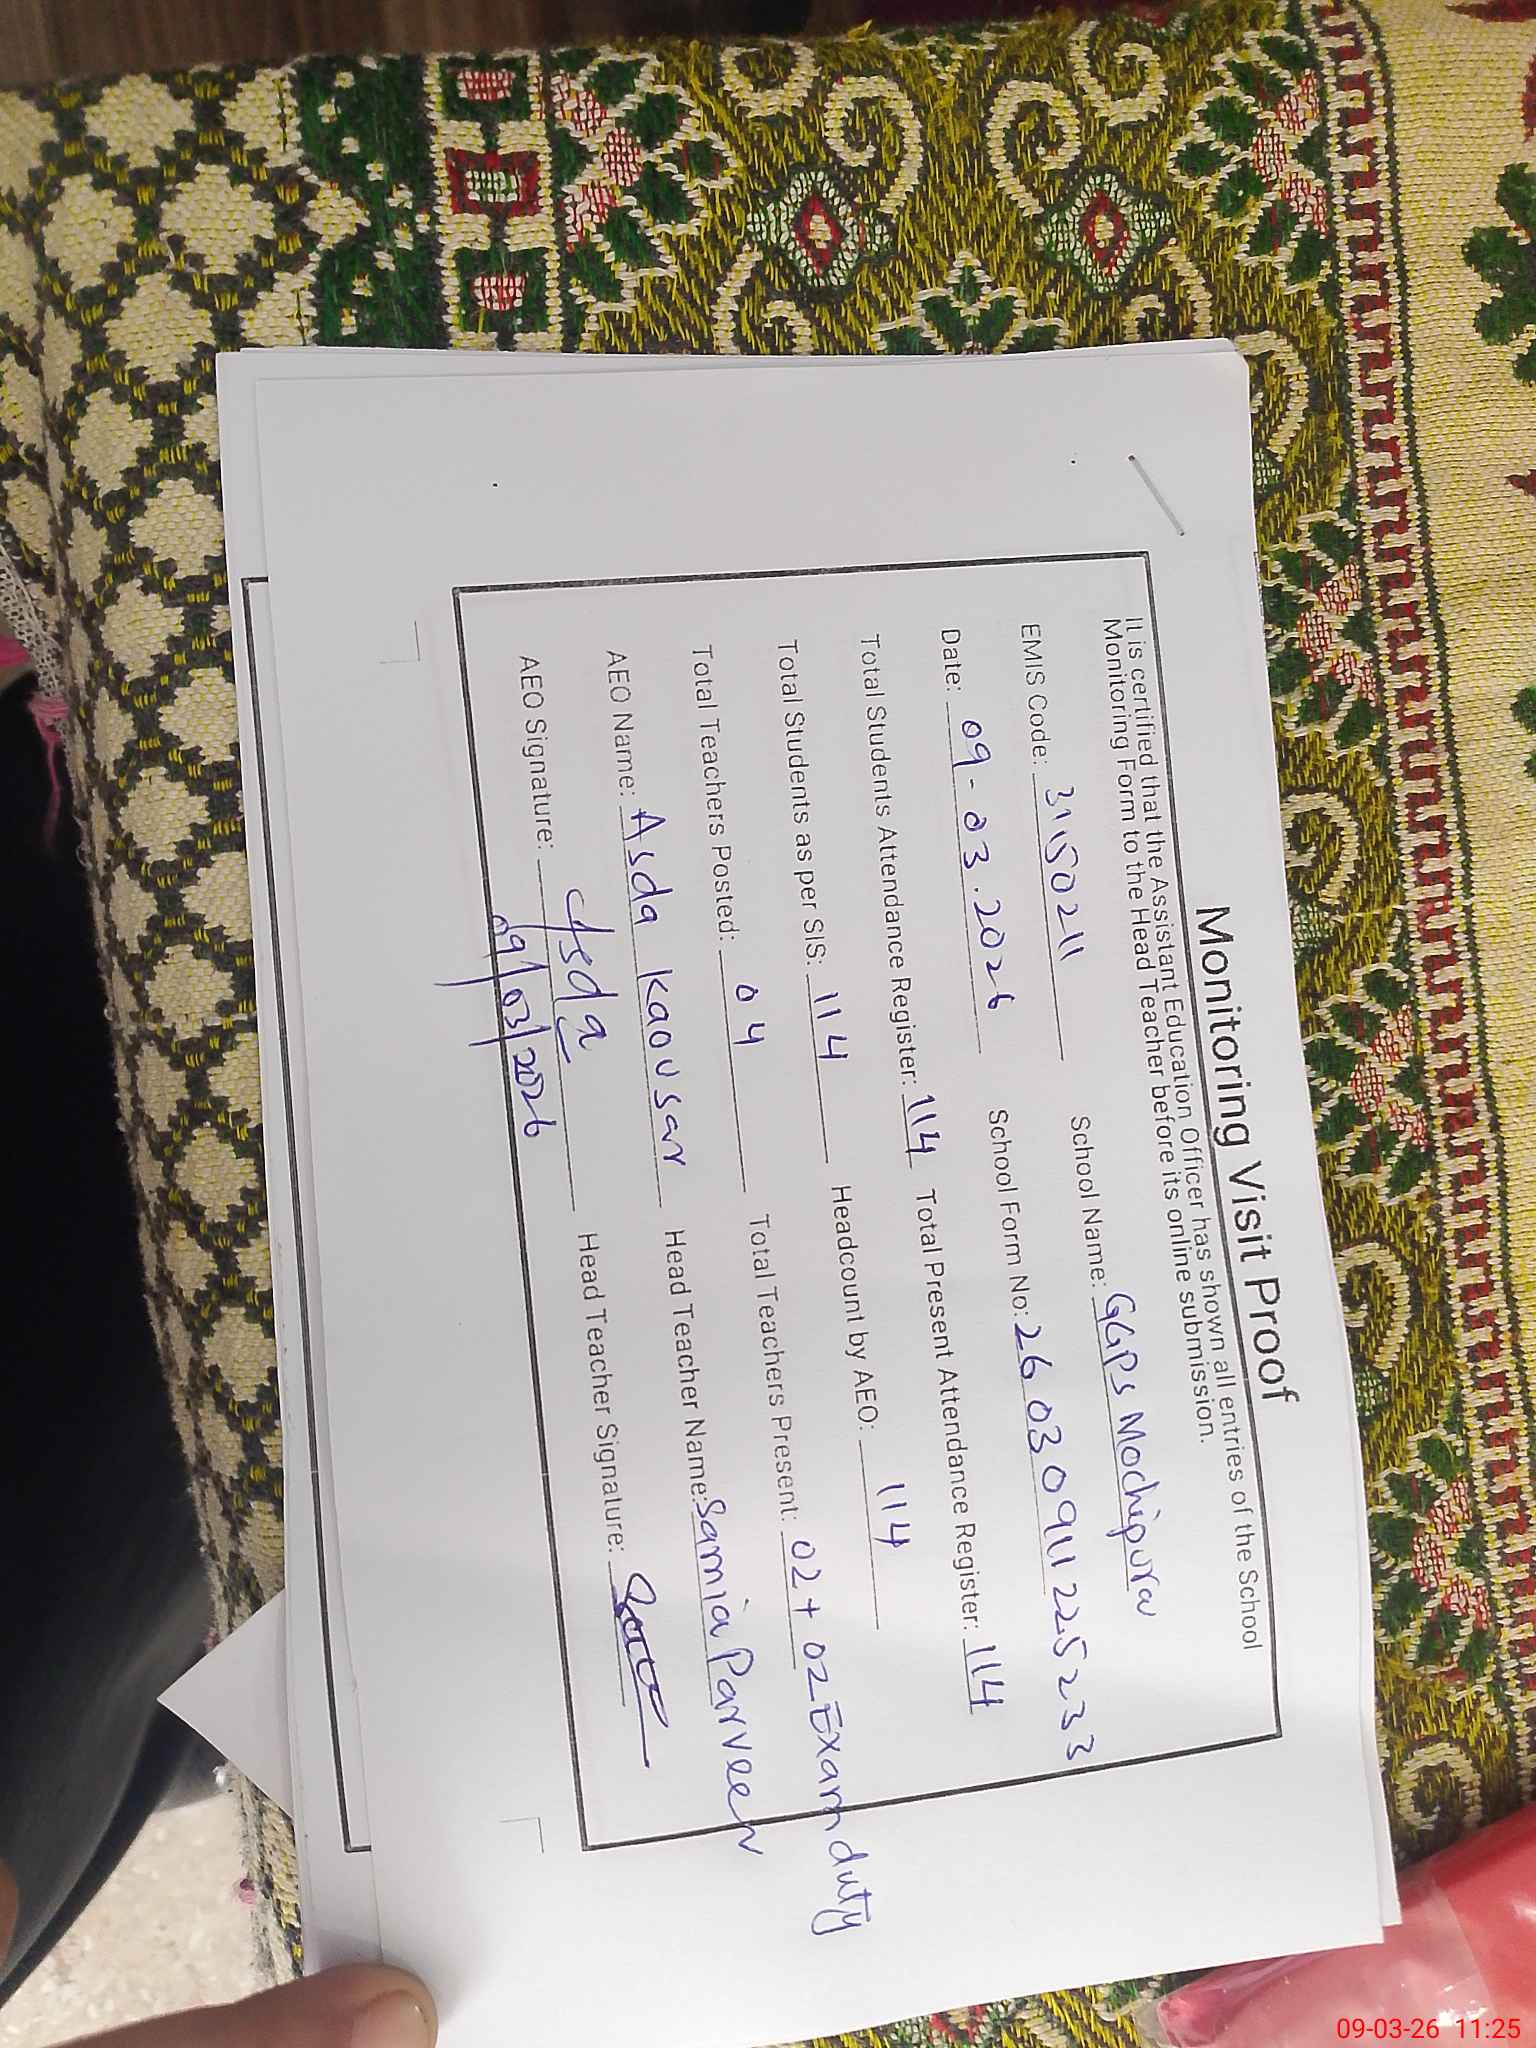 Monitoring Visit Proof
It is certified that the Assistant Education Officer has shown all entries of the School
Monitoring Form to the Head Teacher before its online submission.
EMIS Code: 31150211 School Name: GGPS Mochipura
Date: 09-03.2026 School Form No: 26030911225233
Total Students Attendance Register: 114 Total Present Attendance Register: 114
Total Students as per SIS: 114 Headcount by AEO: 114
Total Teachers Posted: 04 Total Teachers Present: 02+02 Exam duty
AEO Name: Asda Kaousar Head Teacher Name: Samia Parveen
AEO Signature: Asda Head Teacher Signature:
09/03/2026
09-03-26 11:25